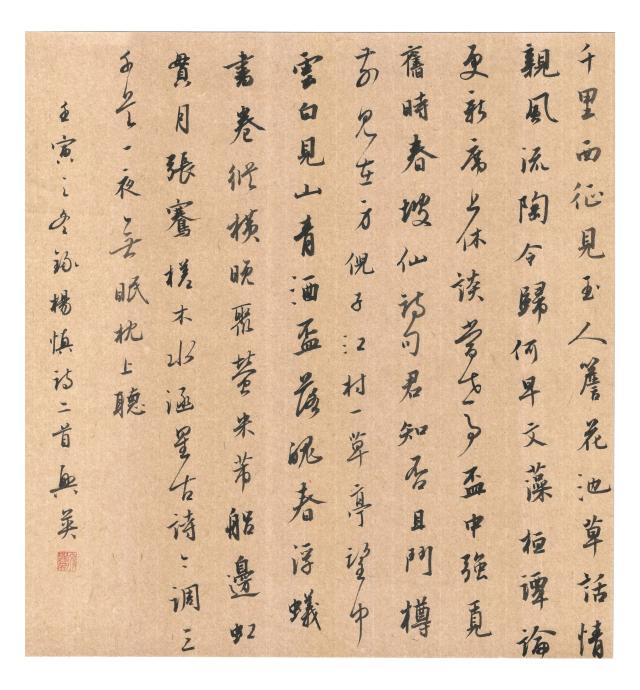 千里西征見玉人簷花池草話情
親風流陶令歸何早文藻桓譚論
更新席上休談當世事盃中強覓
舊時春坡仙詩句君知否且鬥樽
前見在身倪子江村一草亭望中
雲白見山青酒盃落魄春浮蟻
書卷縱橫晚聚螢米芾船邊虹
貫月張騫槎木水涵星古詩〻調三
千首一夜無眠枕上聽
壬寅之冬錄楊慎詩二首興英